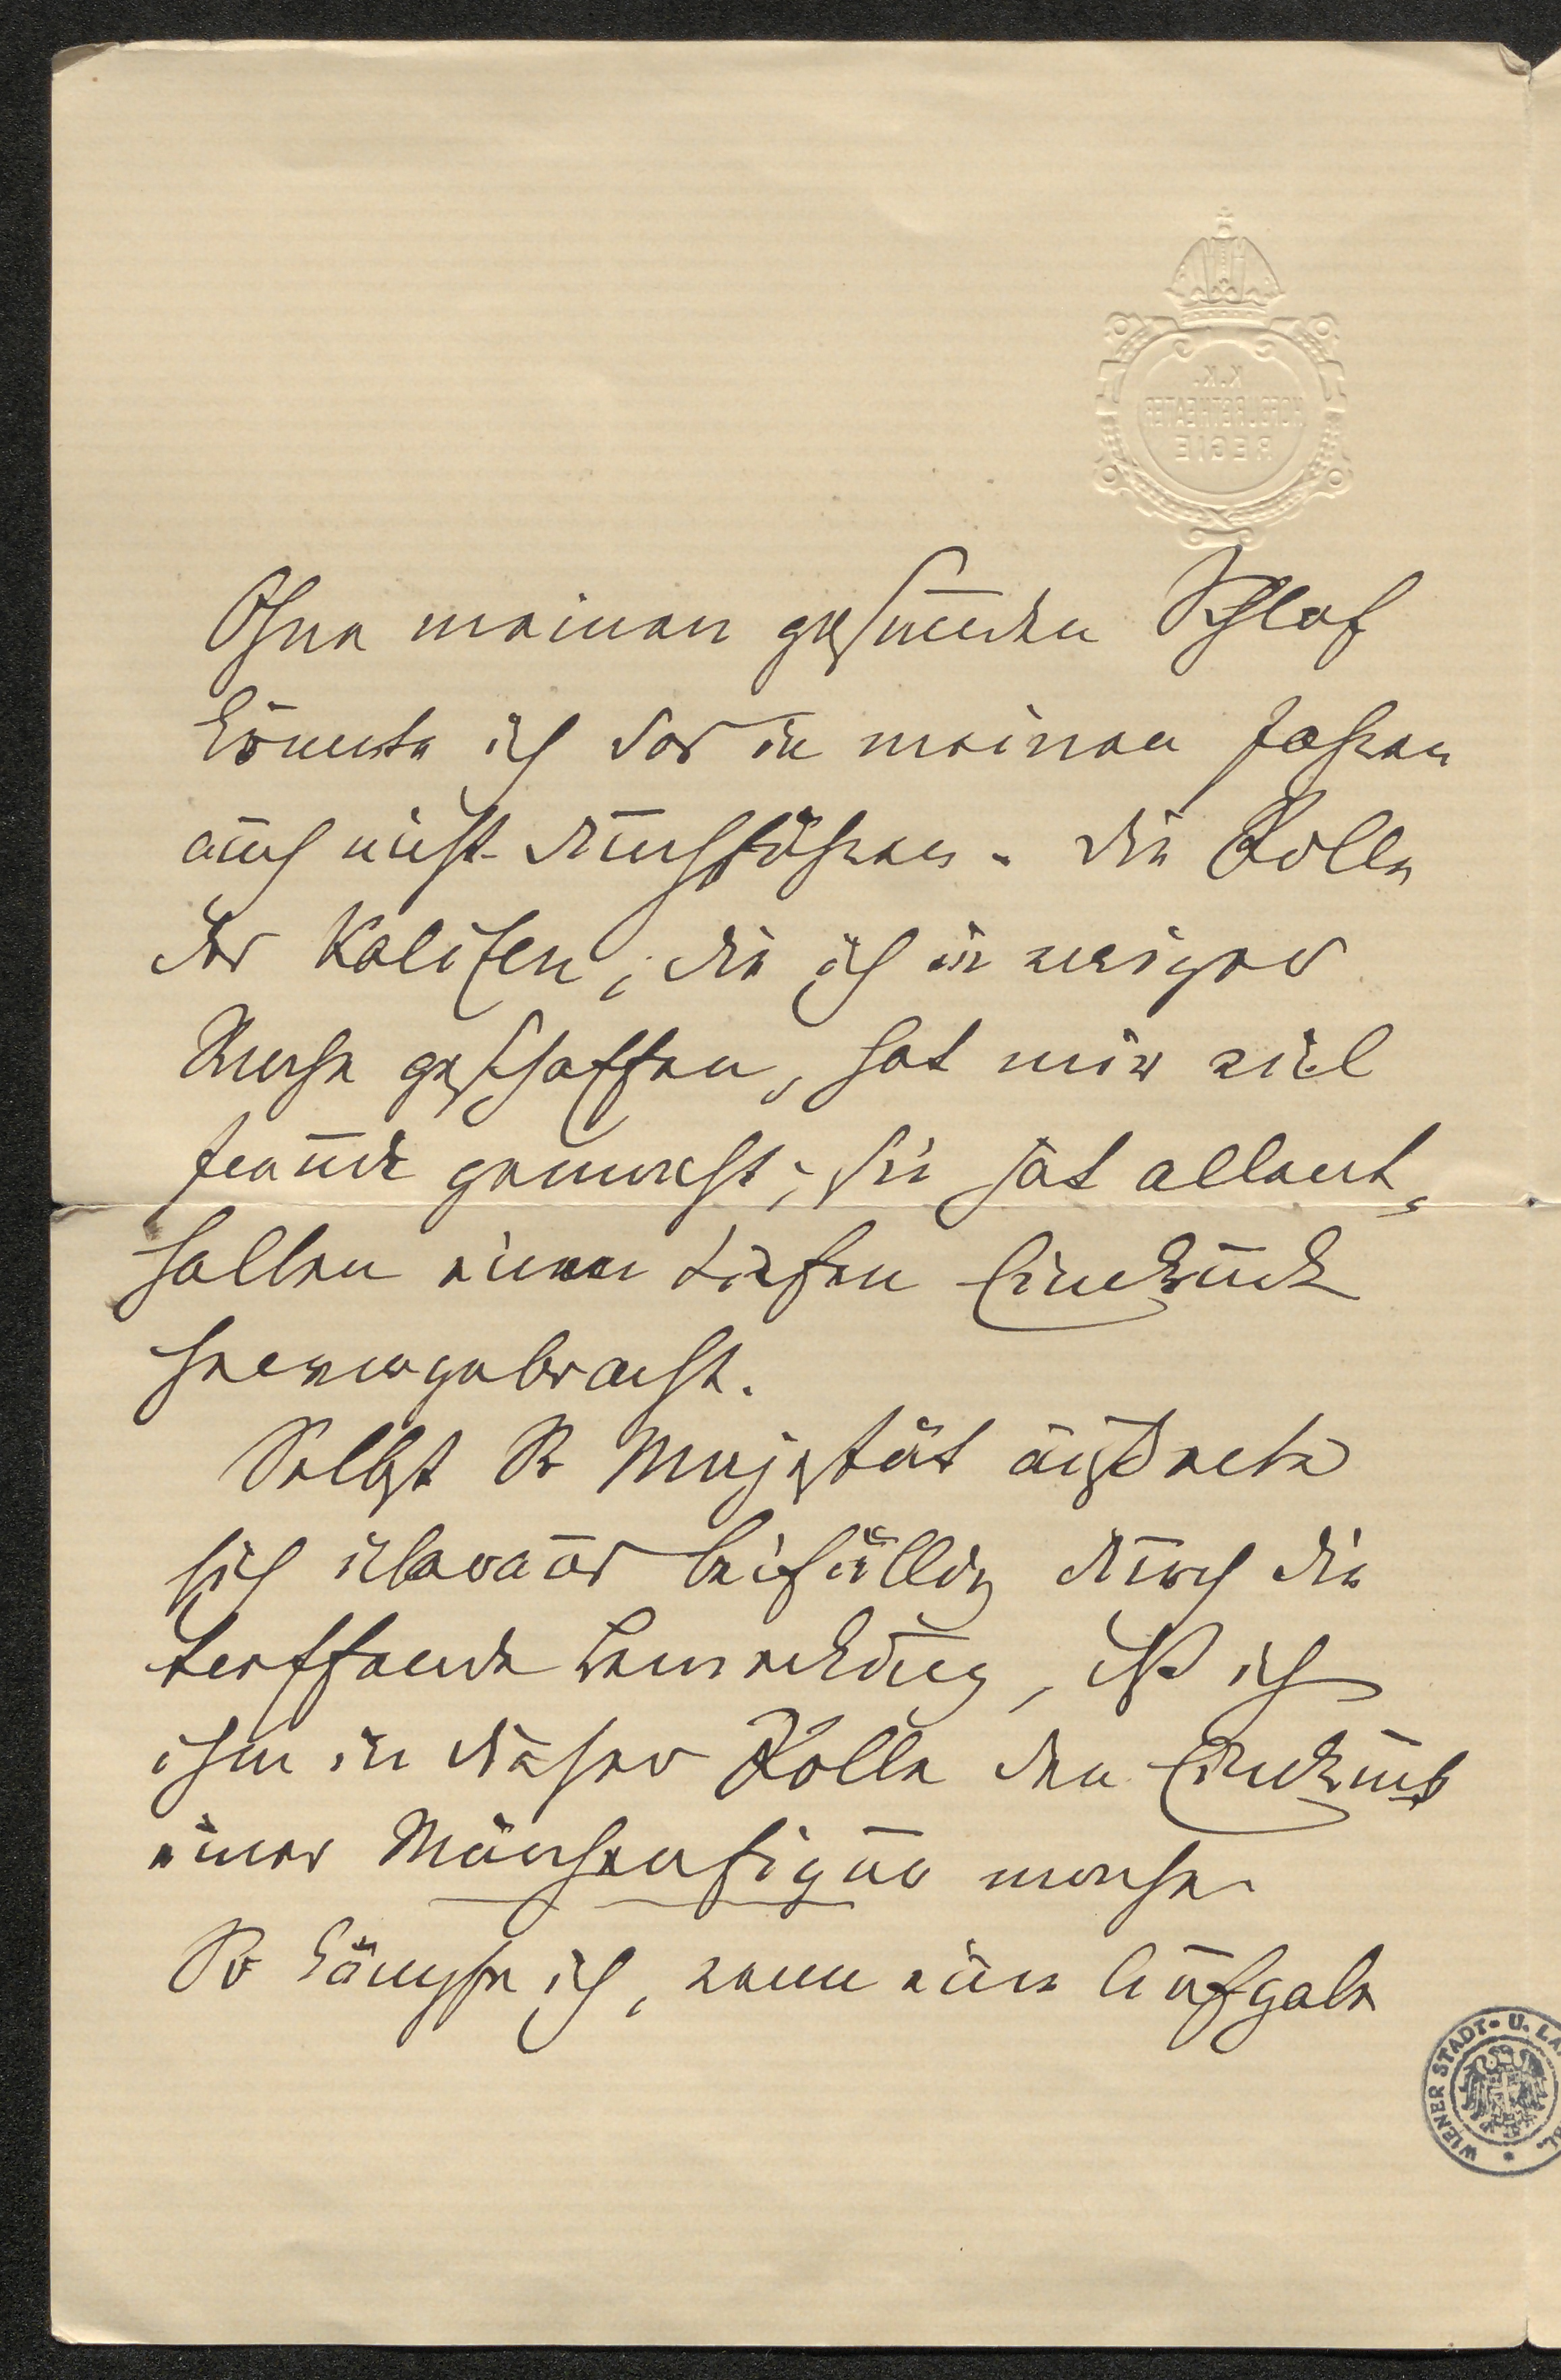 K. K.
HOFBURGTHEATER
REGIE
Ohne meinen gesunden Schlaf
könnte ich das in meinen Jahren
auch nicht durchführen. Die Rolle
des Kalifen, die ich in einiger
Woche geschaffen, hat mir viel
Freude gemacht; sie hat allent-
halben einen tiefen Eindruck
hervorgebracht.
Selbst Se Majestät äußerte
sich überaus beifällig durch die
treffende Bemerkung, daß ich
ihm in dieser Rolle den Eindruck
einer Märchenfigur mache.
So kämpfe ich, wenn eine Aufgabe
WIENER STADT- U. LA